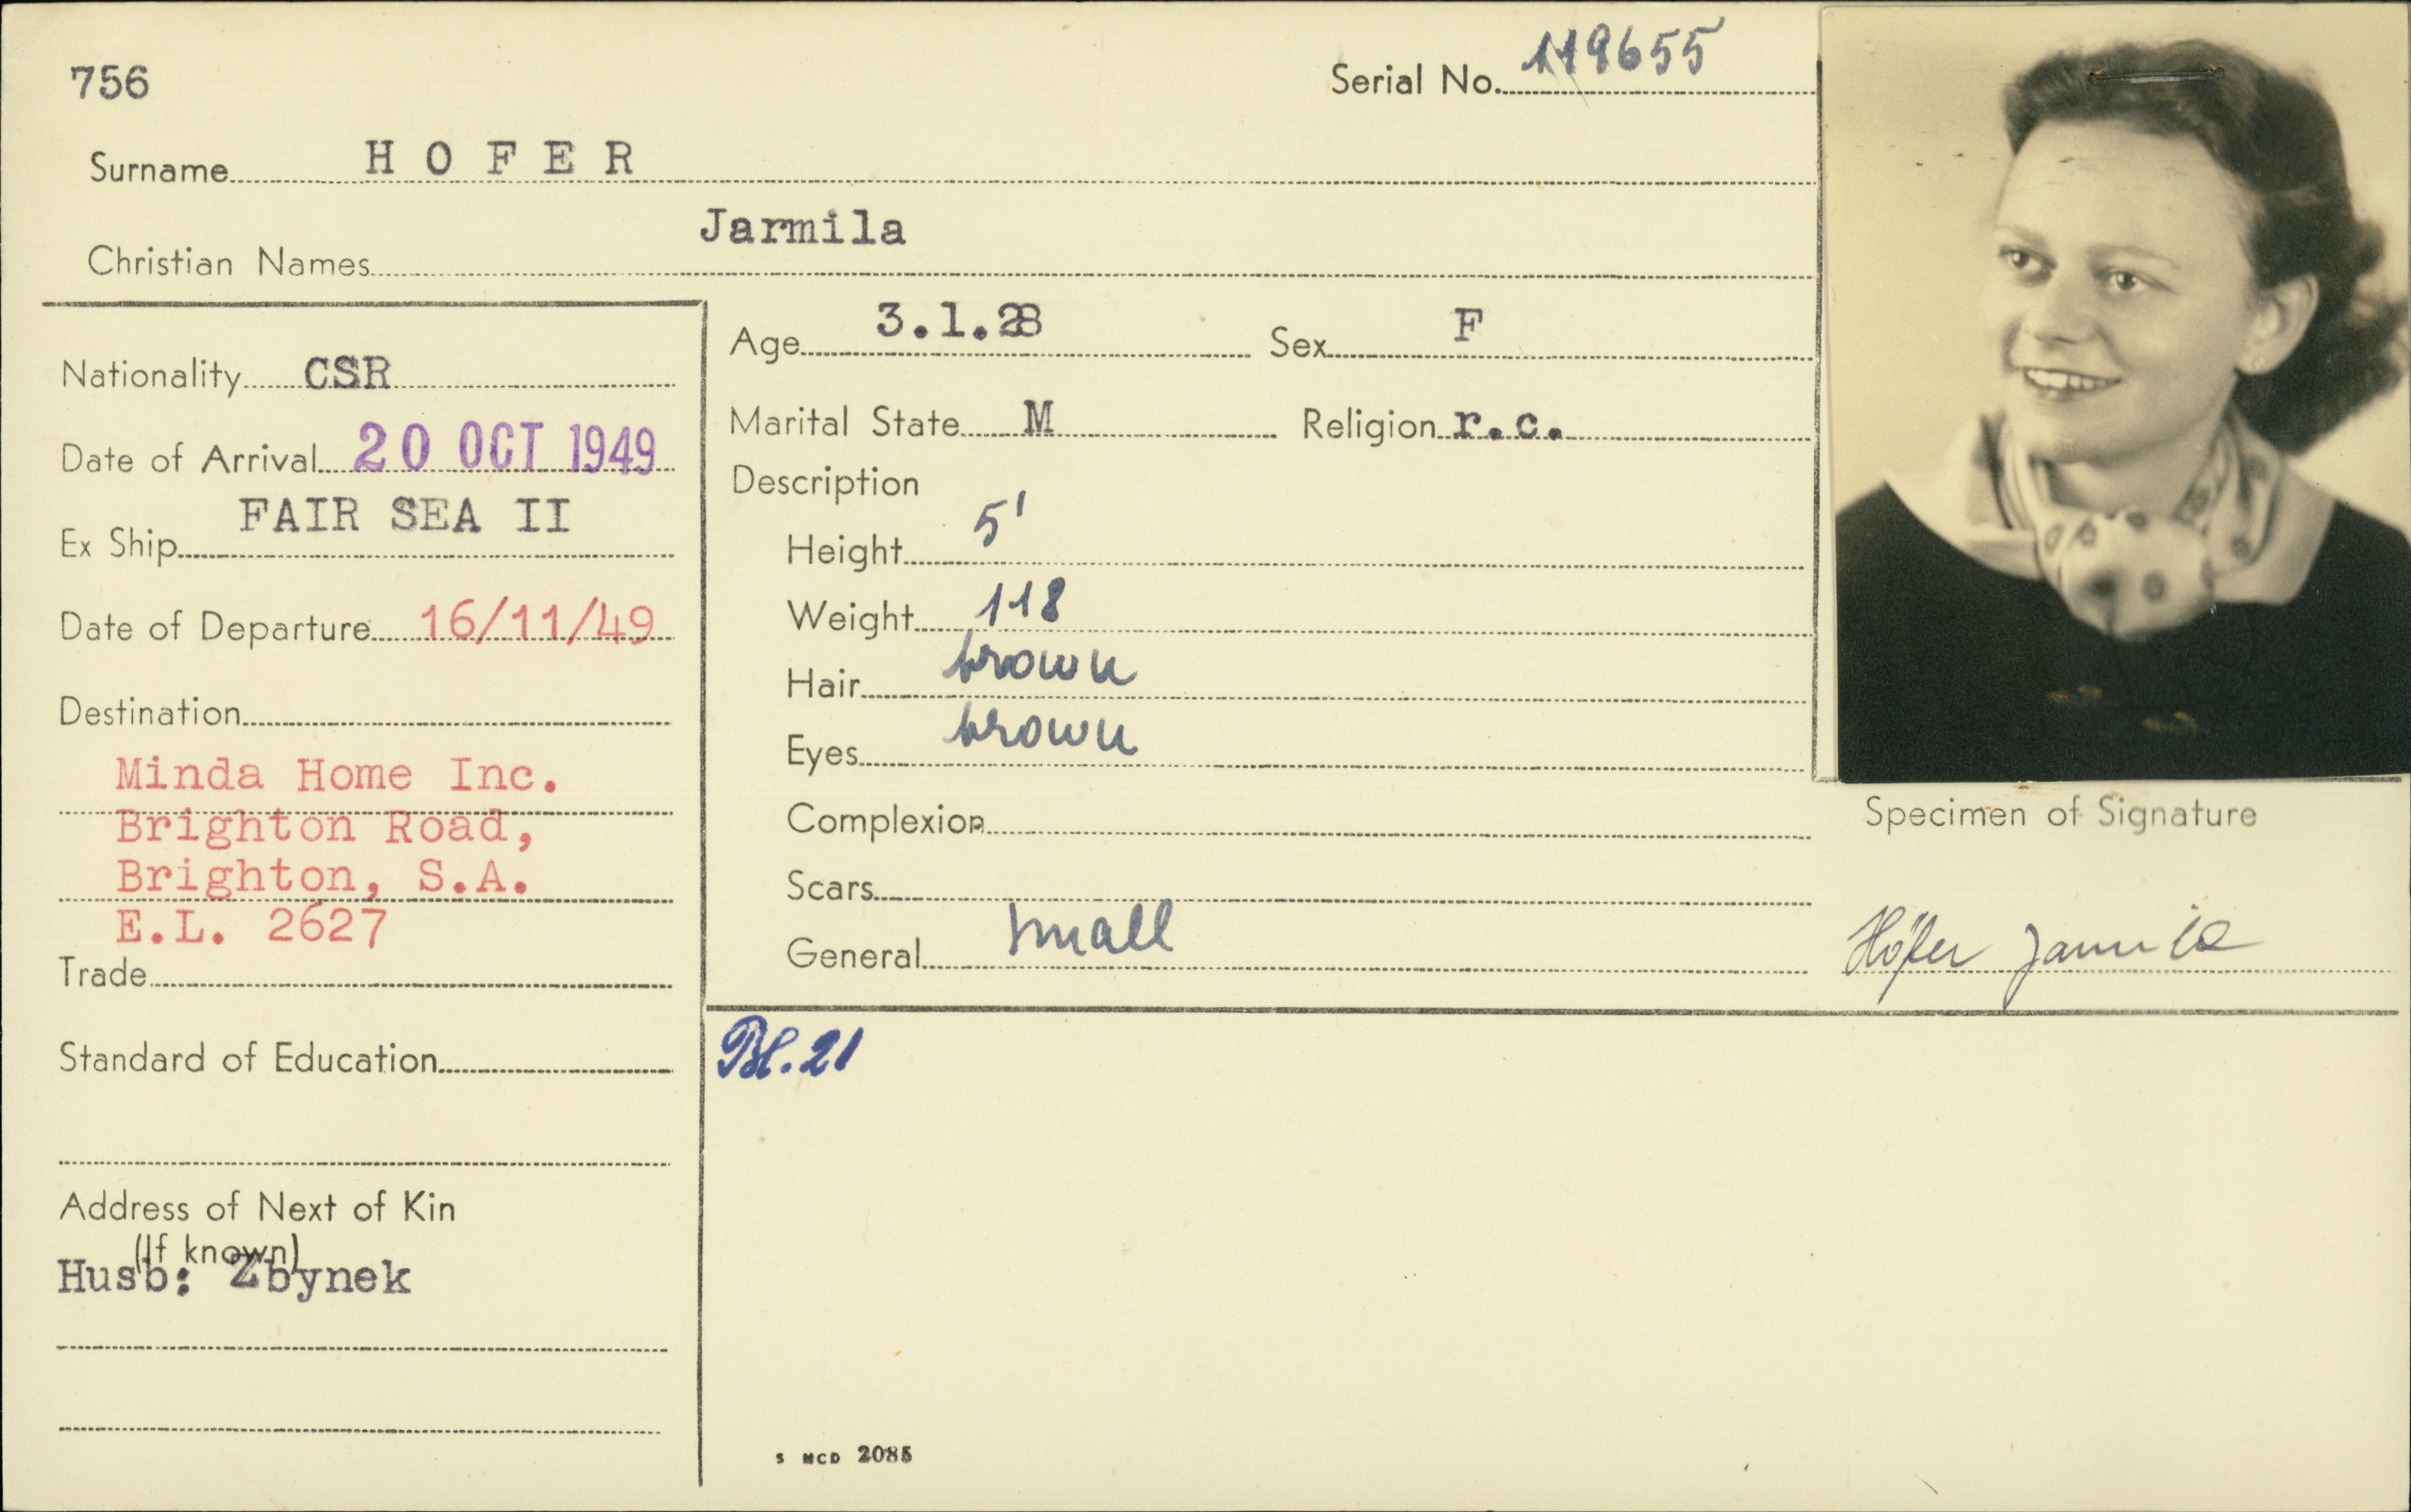 756
Serial No. 119655
Surname H O F E R
Jarmila
Christian Names
Age 3.1.28 Sex F
Nationality CSR
Marital State M Religion r.c.
Date of Arrival 20 OCT 1949
Description
FAIR SEA II
Ex Ship
Height 5'
Date of Departure 16/11/49
Weight 118
Hair brown
Destination
Eyes brown
Minda Home Inc.
Brighton Road,
Brighton, S.A.
E.L. 2627
Complexion
Specimen of Signature
Scars
General small
Höfer Jarmila
Trade
Bl. 21
Standard of Education
Address of Next of Kin
(If known)
Husb: Zbynek
S MCD 2085